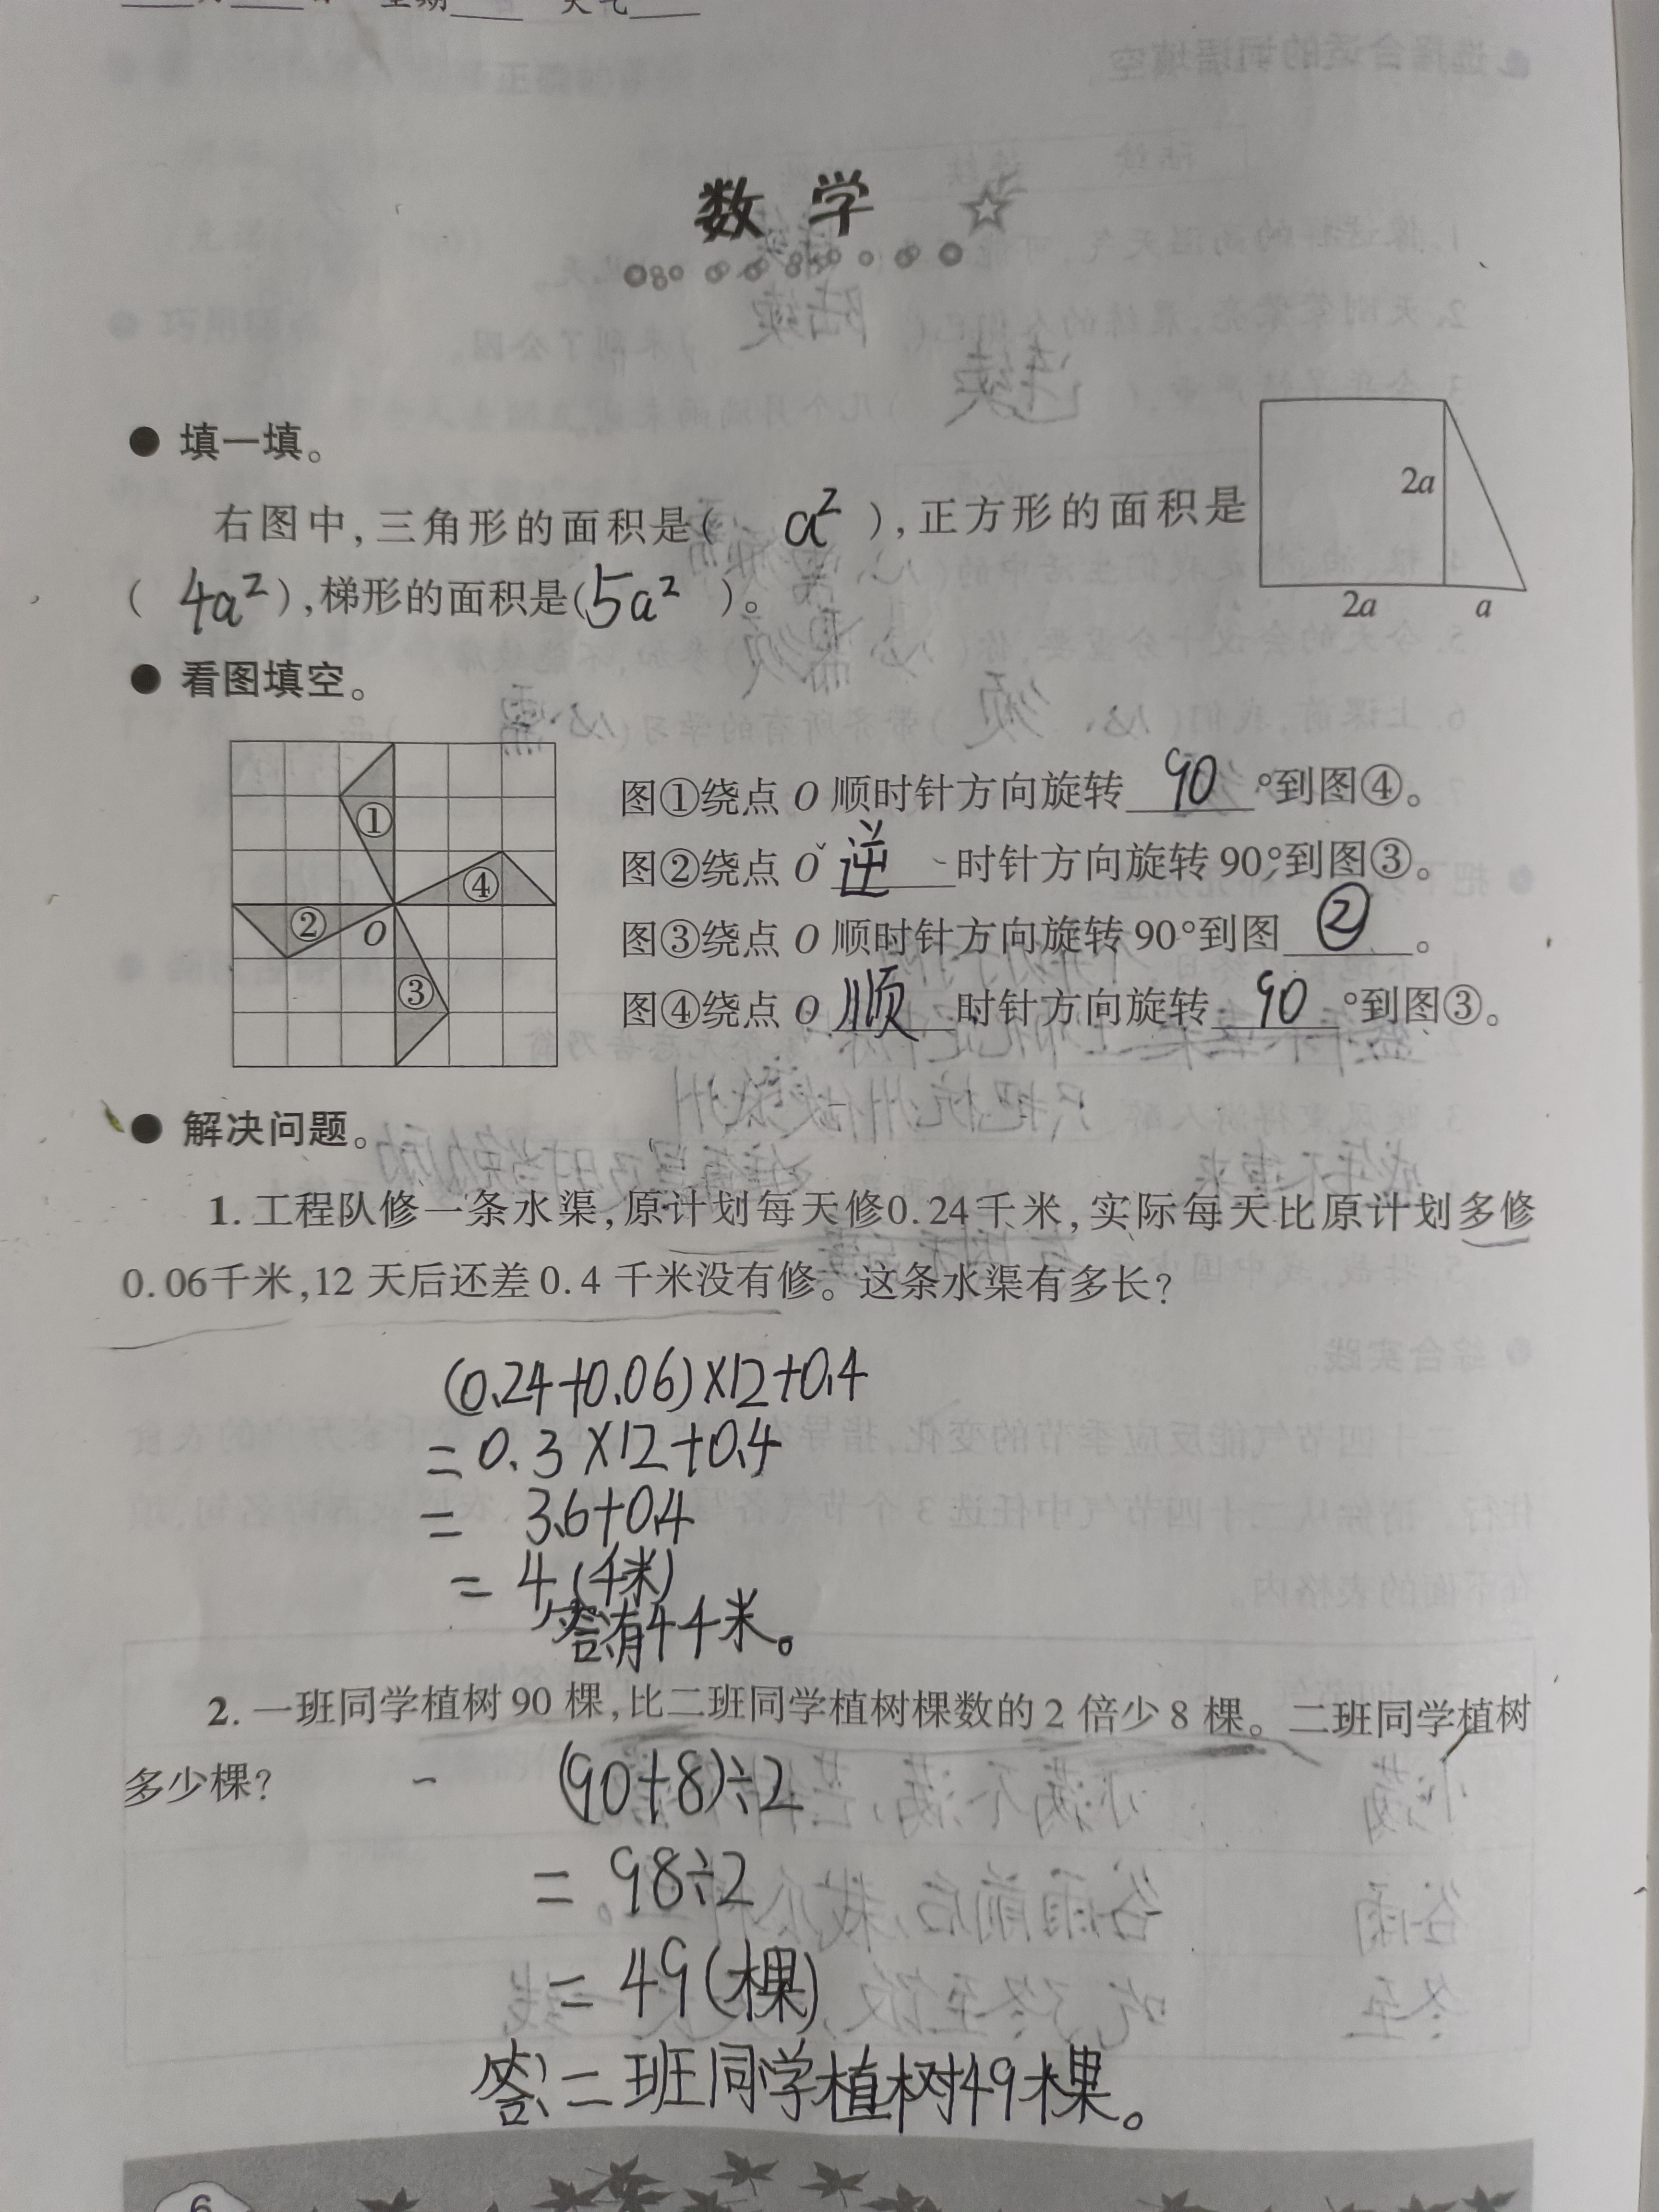 星期____ 天气____
数学
● 填一填。
右图中,三角形的面积是( a² ),正方形的面积是
( 4a² ),梯形的面积是(5a² )。
2a
2a
a
● 看图填空。
①
②
③
④
O
图①绕点 O 顺时针方向旋转 90 °到图④。
图②绕点 O 逆 时针方向旋转 90°到图③。
图③绕点 O 顺时针方向旋转 90°到图 ② 。
图④绕点 O 顺 时针方向旋转 90 °到图③。
● 解决问题。
1. 工程队修一条水渠,原计划每天修0.24千米,实际每天比原计划多修
0.06千米,12 天后还差 0.4 千米没有修。这条水渠有多长?
(0.24+0.06)×12+0.4
=0.3×12+0.4
= 3.6+0.4
= 4(千米)
答:有4千米。
2. 一班同学植树 90 棵,比二班同学植树棵数的 2 倍少 8 棵。二班同学植树
多少棵?
(90+8)÷2
= 98÷2
= 49(棵)
答:二班同学植树49棵。
6